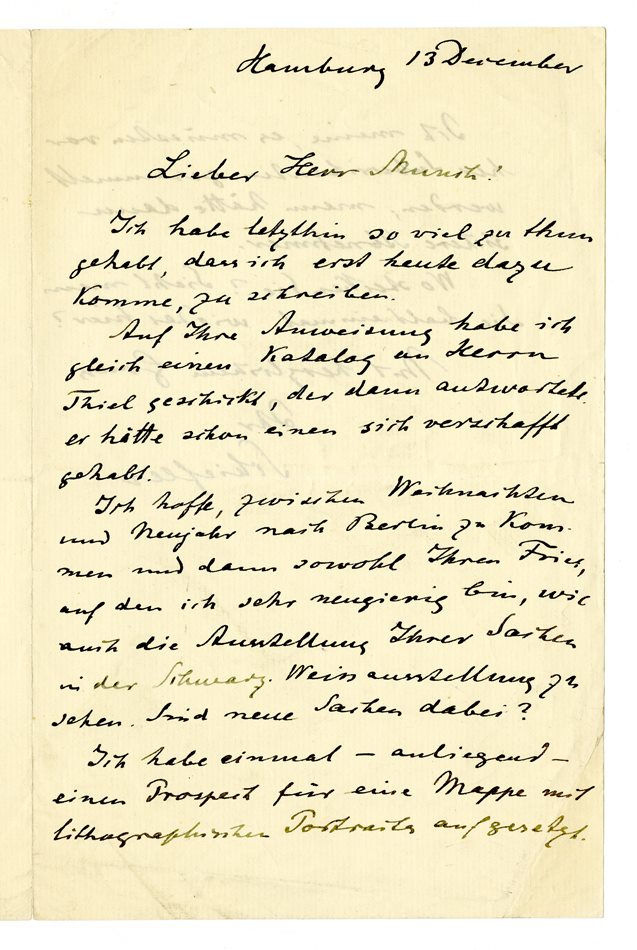 Hamburg 13 December
Lieber Herr Munch!
Ich habe letzthin so viel zu thun
gehabt, dass ich erst heute dazu
komme, zu schreiben.
Auf Ihre Anweisung habe ich
gleich einen Katalog an Herrn
Thiel geschickt, der dann antwortete
er hätte schon einen sich verschafft
gehabt.
Ich hoffe, zwischen Weihnachten
und Neujahr nach Berlin zu kom-
men und dann sowohl Ihren Fries,
auf den ich sehr neugierig bin, wie
auch die Ausstellung Ihrer Sachen
in der Schwarz-Weissausstellung zu
sehen. Sind neue Sachen dabei?
Ich habe einmal – anliegend –
einen Prospect für eine Mappe mit
lithographischen Portraits aufgesetzt.